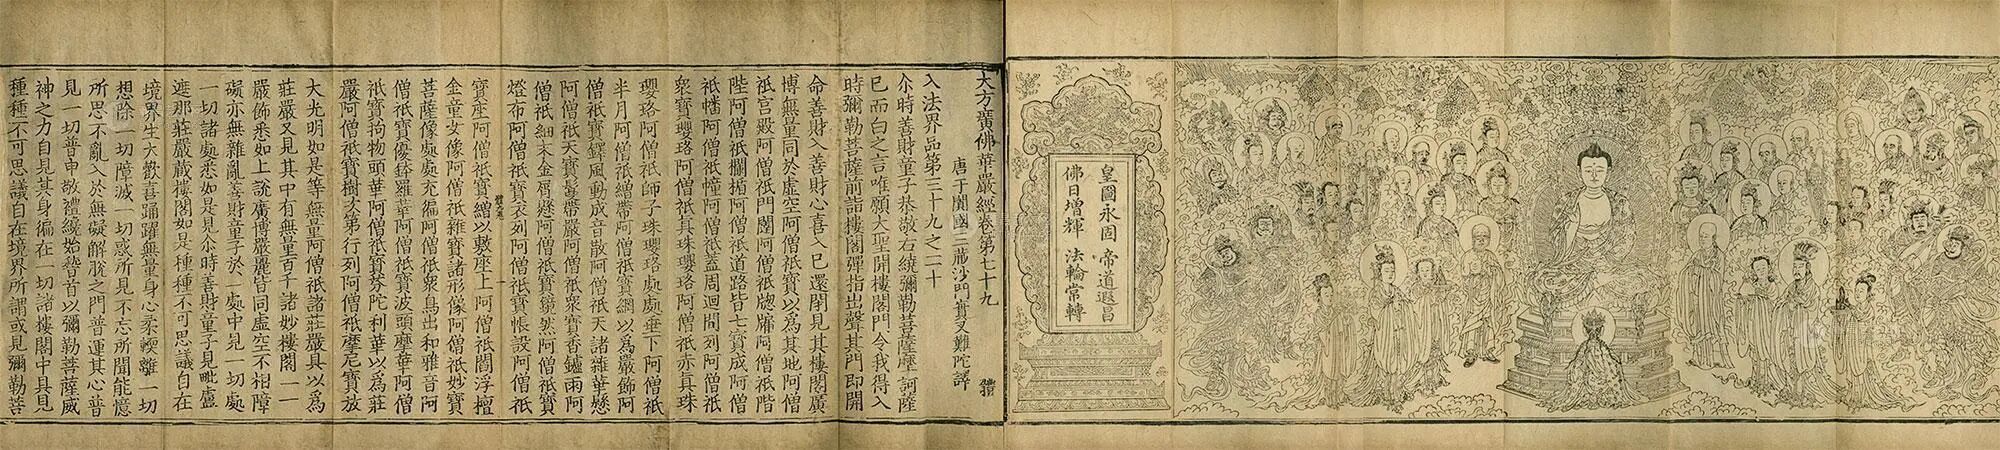 皇圖永固　帝道遐昌
佛日增輝　法輪常轉
大方廣佛華嚴經卷第七十九　體
唐于闐國三藏沙門實叉難陀譯
入法界品第三十九之二十
尒時善財童子恭敬右繞彌勒菩薩摩訶薩
已而白之言唯願大聖開樓閣門令我得入
時彌勒菩薩前詣樓閣彈指出聲其門即開
命善財入善財心喜入已還閉見其樓閣廣
博無量同於虛空阿僧祇寶以為其地阿僧
祇宮殿阿僧祇門闥阿僧祇牕牖阿僧祇階
陛阿僧祇欄楯阿僧祇道路皆七寶成阿僧
祇幡阿僧祇幢阿僧祇蓋周迴間列阿僧祇
衆寶瓔珞阿僧祇真珠瓔珞阿僧祇赤真珠
瓔珞阿僧祇師子珠瓔珞處處垂下阿僧祇
半月阿僧祇繒帶阿僧祇寶網以為嚴飾阿
僧祇寶鐸風動成音散阿僧祇天諸雜華懸
阿僧祇天寶鬘帶嚴阿僧祇衆寶香鑪雨阿
僧祇細末金屑懸阿僧祇寶鏡然阿僧祇寶
燈布阿僧祇寶衣列阿僧祇寶帳設阿僧祇
寶座阿僧祇寶繒以敷座上阿僧祇閻浮檀
金童女像阿僧祇雜寶諸形像阿僧祇妙寶
菩薩像處處充徧阿僧祇衆鳥出和雅音阿
僧祇寶優鉢羅華阿僧祇寶波頭摩華阿僧
祇寶拘物頭華阿僧祇寶芬陀利華以為莊
嚴阿僧祇寶樹次第行列阿僧祇摩尼寶放
大光明如是等無量阿僧祇諸莊嚴具以為
莊嚴又見其中有無量百千諸妙樓閣一一
嚴飾悉如上說廣博嚴麗皆同虛空不相障
礙亦無雜亂善財童子於一處中見一切處
一切諸處悉如是見尒時善財童子見毗盧
遮那莊嚴藏樓閣如是種種不可思議自在
境界生大歡喜踊躍無量身心柔輭離一切
想除一切障滅一切惑所見不忘所聞能憶
所思不亂入於無礙解脫之門普運其心普
見一切普申敬禮纔始稽首以彌勒菩薩威
神之力自見其身徧在一切諸樓閣中具見
種種不可思議自在境界所謂或見彌勒菩